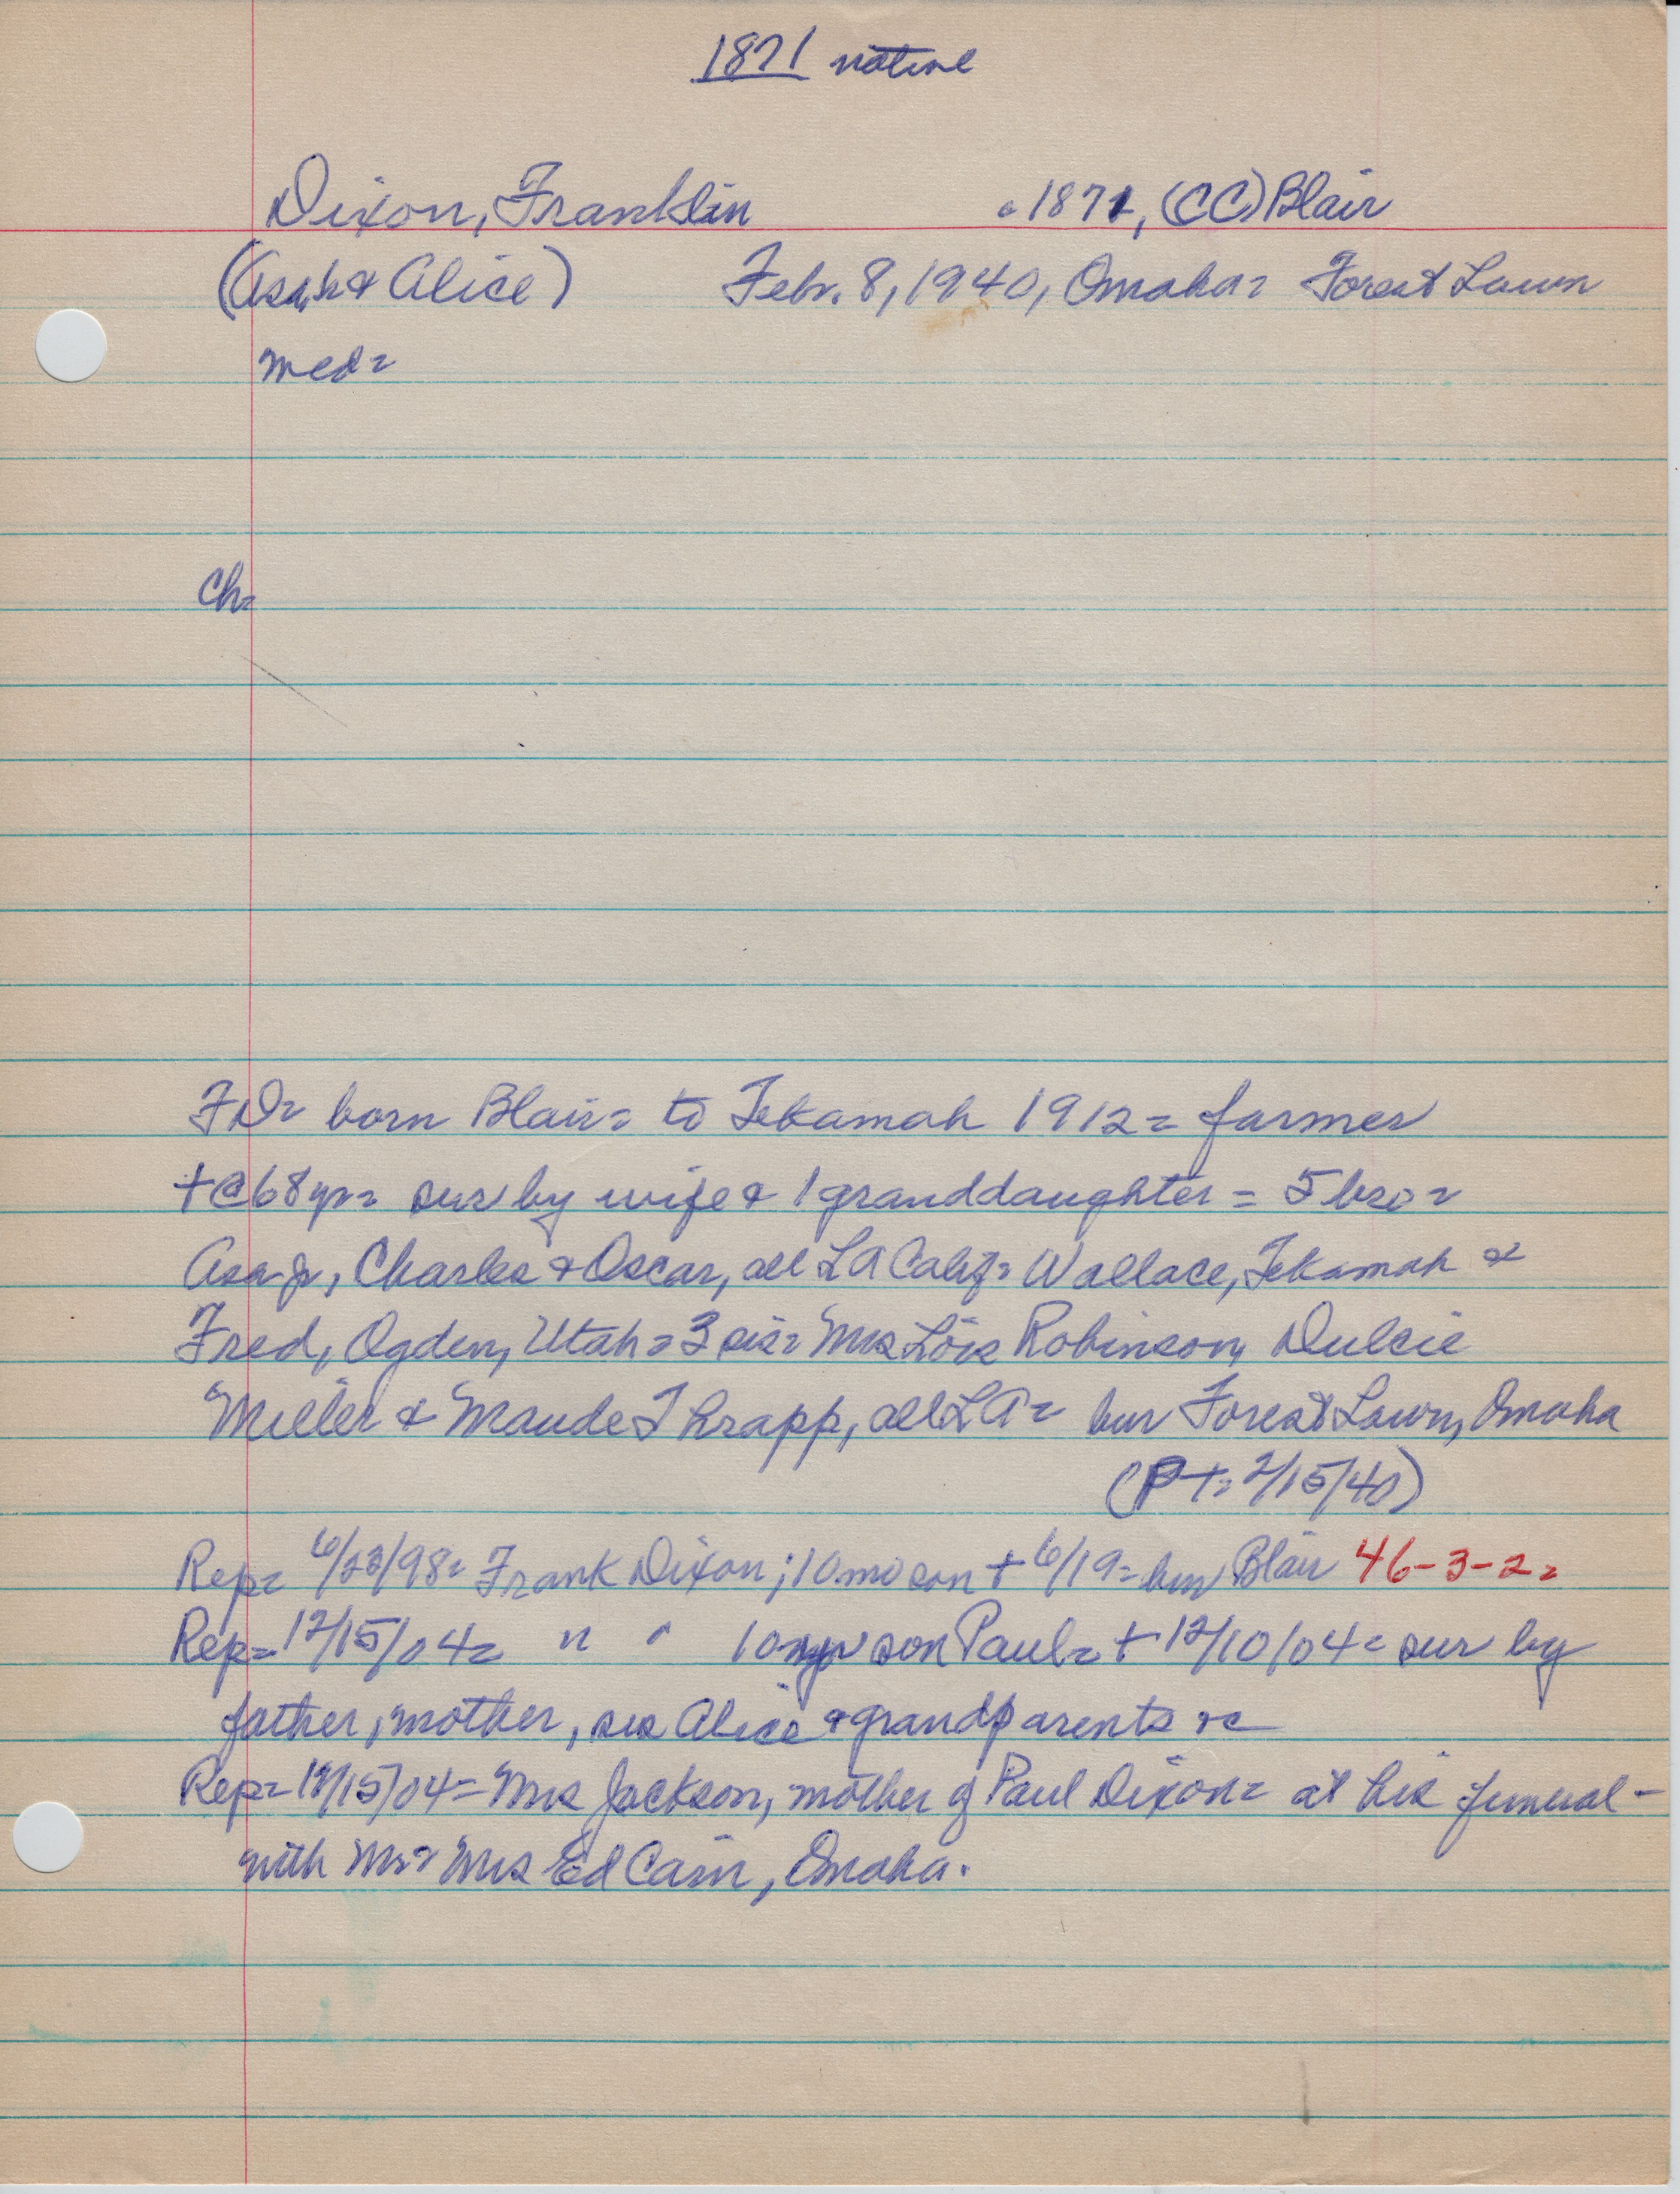 1871 native
Dixon, Franklin c1871, (CC) Blair
(Asah & Alice) Febr. 8, 1940, Omaha = Forest Lawn
med =
Ch =
FD = born Blair = to Tekamah 1912 = farmer
+ @ 68 yr = sur by wife & 1 granddaughter = 5 bro =
Asa Jr, Charles & Oscar, all LA Calif = Wallace, Tekamah &
Fred, Ogden, Utah = 3 sis = Mrs Lois Robinson, Dulcie
Miller & Maude Thrapp, all LA = bur Forest Lawn, Omaha
(PT = 2/15/40)
Rep = 6/23/98 = Frank Dixon; 10 mo son + 6/19 = bur Blair 46-3-2 =
Rep = 12/15/04 = " " 10 yr son Paul = + 12/10/04 = sur by
father, mother, sis Alice & grandparents
Rep = 12/15/04 = Mrs Jackson, mother of Paul Dixon = at his funeral -
with Mr & Mrs Ed Cain, Omaha.